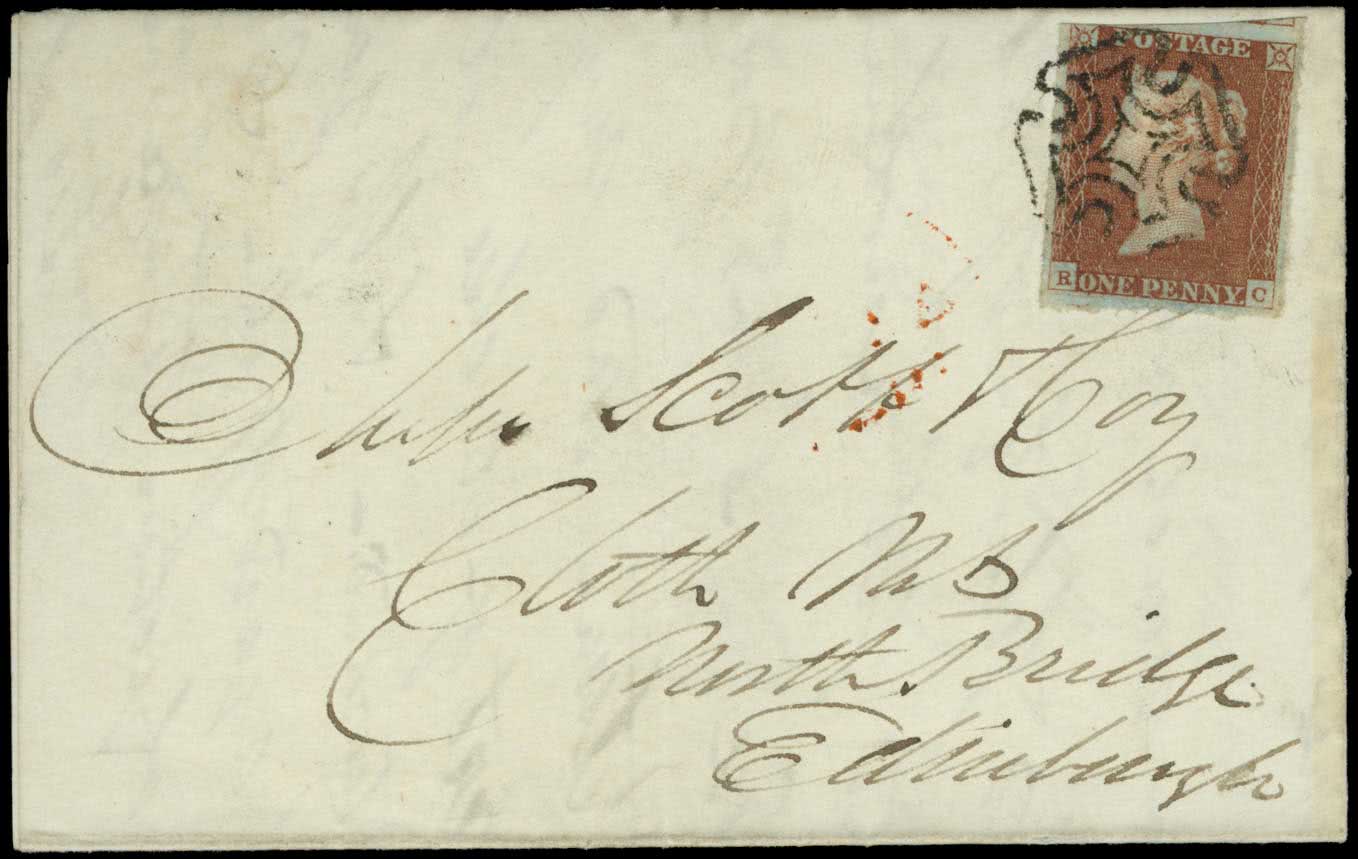 POSTAGE
R ONE PENNY C
Scott & Coy
Cloth
North Bridge
Edinburgh